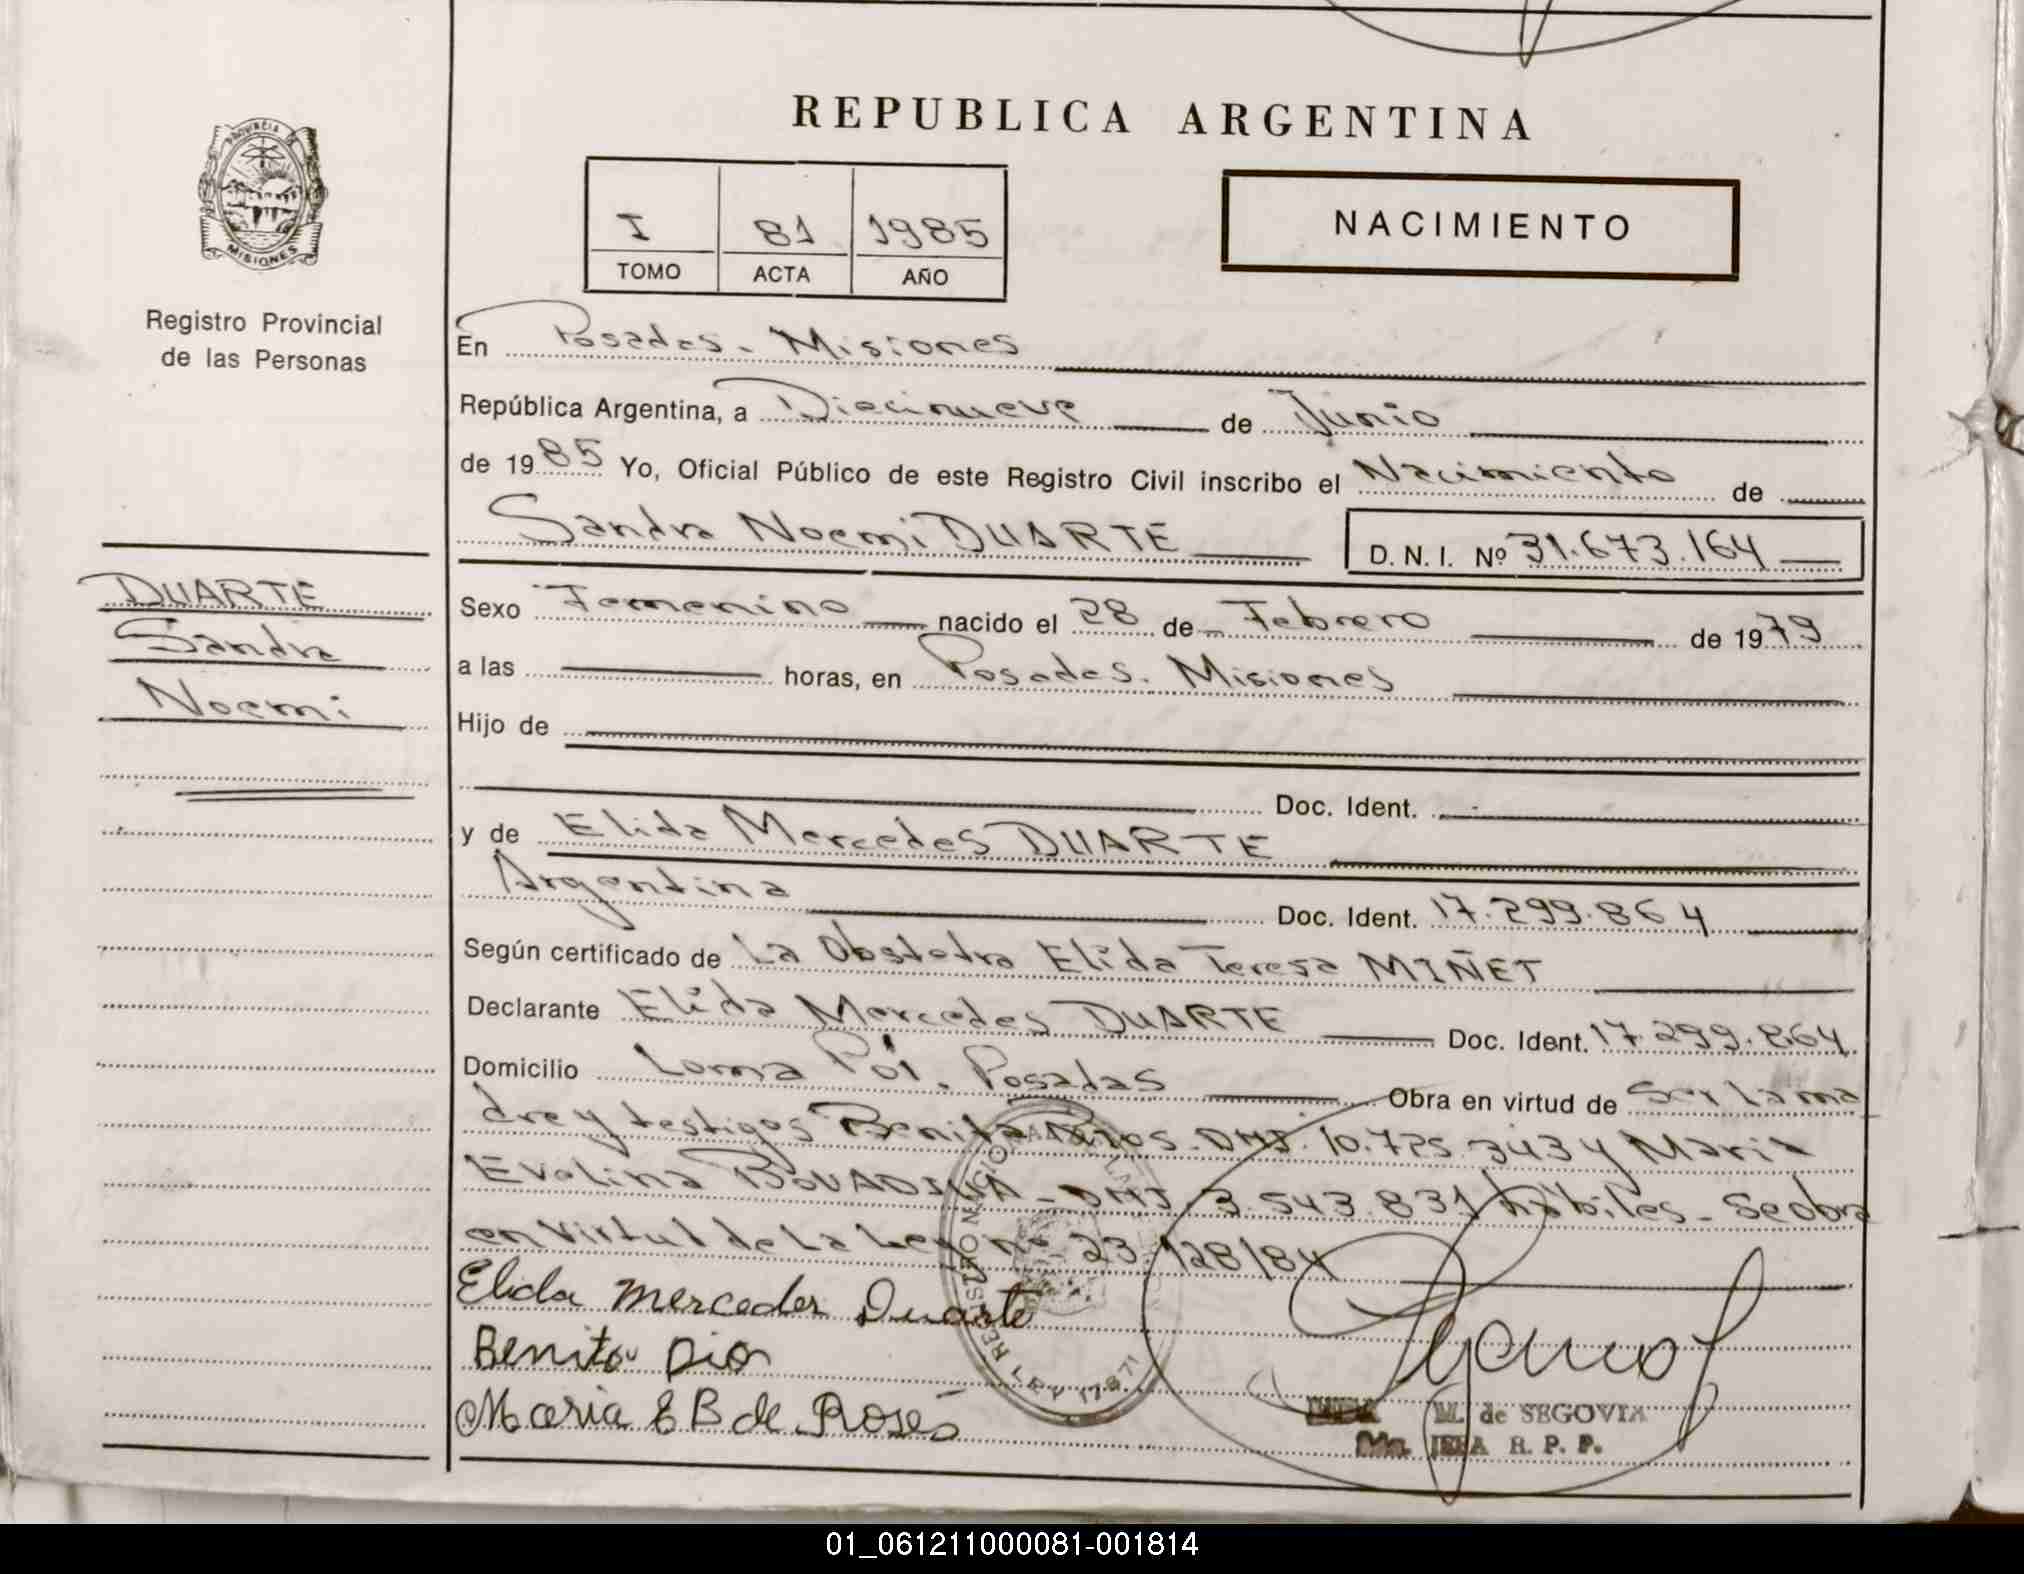 REPUBLICA ARGENTINA
PROVINCIA DE
MISIONES
Registro Provincial
de las Personas
I 81 1985
TOMO ACTA AÑO
NACIMIENTO
En Posadas - Misiones
República Argentina, a Diecinueve de Junio
de 1985 Yo, Oficial Público de este Registro Civil inscribo el Nacimiento de
Sandra Noemi DUARTE D.N.I. Nº 31.673.164
DUARTE
Sandra
Noemi
Sexo Femenino nacido el 28 de Febrero de 1979
a las horas, en Posadas. Misiones
Hijo de
Doc. Ident.
y de Elida Mercedes DUARTE
Argentina Doc. Ident. 17.299.864
Según certificado de La Obstetra Elida Teresa MIÑET
Declarante Elida Mercedes DUARTE Doc. Ident. 17.299.864
Domicilio Loma Poi. Posadas Obra en virtud de Ser la ma
dre y testigos Benita DNI. 10.725.343 y Maria
Evelina DNI 3.543.831 hábiles - Se obra
en virtud de la Ley nº 23.128/84
REGISTRO NACIONAL DE LAS
LEY 17671
Elida Mercedes Duarte
Benita
Maria E B de Roses
M. de SEGOVIA
JEFA R. P. P.
01_061211000081-001814